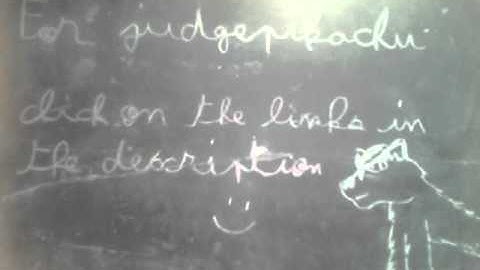 For judgepikachu
click on the links in
the description